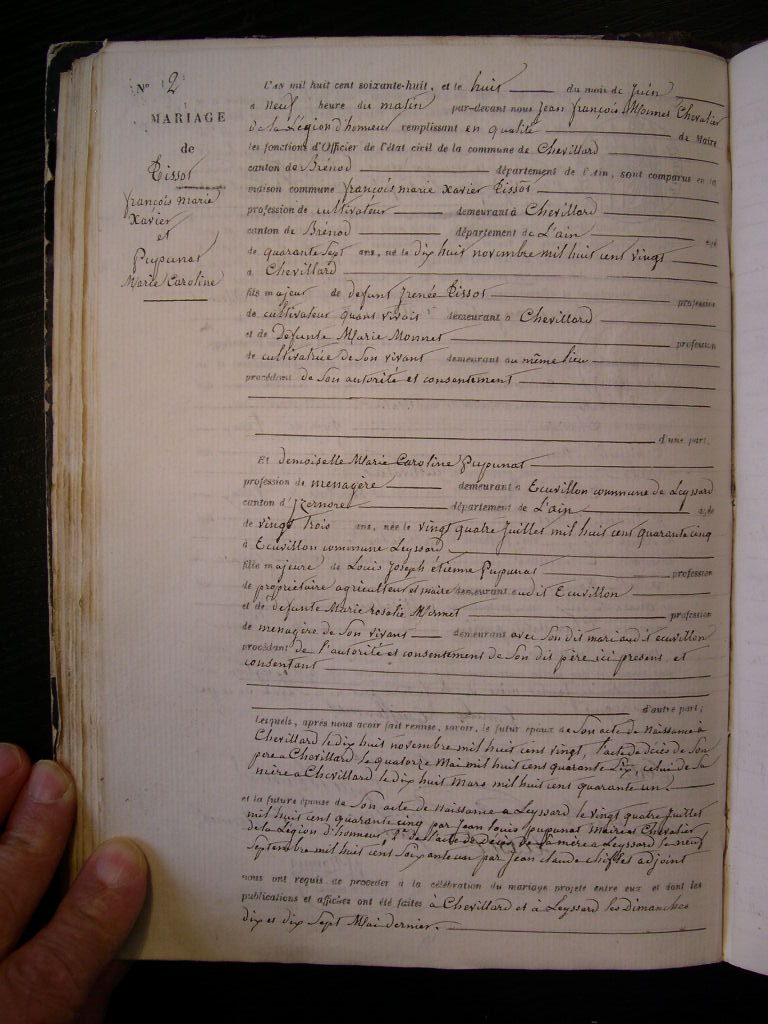 N° 2
MARIAGE
de
Tissot
françois marie
Xavier
et
Pupunat
Marie Caroline
L'AN mil huit cent soixante-huit, et le huit du mois de Juin
a neuf heure du matin par-devant nous Jean françois Monnet Chevalier
de la Légion d'honneur remplissant en qualité de Maire
les fonctions d'Officier de l'état civil de la commune de Chevillard
canton de Brénod département de l'Ain, sont comparus en la
maison commune françois marie Xavier Tissot
profession de cultivateur demeurant à Chevillard
canton de Brénod département de L'ain agé
de quarante sept ans, né le dix huit novembre mil huit cent vingt
à Chevillard
fils majeur de defunt Irenée Tissot profession
de cultivateur quant vivait demeurant à Chevillard
et de Defunte Marie Monnet profession
de cultivatrice de Son vivant demeurant au même lieu
procédant de Son autorité et consentement
d'une part.
Et demoiselle Marie Caroline Pupunat
profession de menagère demeurant à Ecuvillon commune de Leyssard
canton d'Izernore département de L'ain agée
de vingt trois ans, née le vingt quatre Juillet mil huit cent quarante cinq
à Ecuvillon commune Leyssard
fille majeure de Louis Joseph étienne Pupunat profession
de propriétaire agriculteur et maire demeurant audit Ecuvillon
et de defunte Marie rosalie Mermet profession
de menagère de Son vivant demeurant avec Son dit mari audit ecuvillon
procédant de l'autorité et consentement de Son dit père ici present et
consentant
d'autre part;
Lesquels, après nous avoir fait remise, savoir, le futur époux de Son acte de Naissance à
Chevillard le dix huit novembre mil huit cent vingt, l'acte de décès de Son
père a Chevillard le quatorze Mai mil huit cent quarante Six, celui de Sa
mère a Chevillard le dix huit Mars mil huit cent quarante un.
et la future épouse de Son acte de Naissance a Leyssard le vingt quatre Juillet
mil huit cent quarante cinq par Jean Louis Pupunat Maire et Chevalier
de la Légion d'honneur, 2° de l'acte de Décès de Sa mère a Leyssard le neuf
Septembre mil huit cent Soixante un par Jean claude adjoint
nous ont requis de procéder à la célébration du mariage projeté entre eux et dont les
publications et affiches ont été faites à Chevillard et à Leyssard les Dimanches
dix et dix Sept Mai dernier.